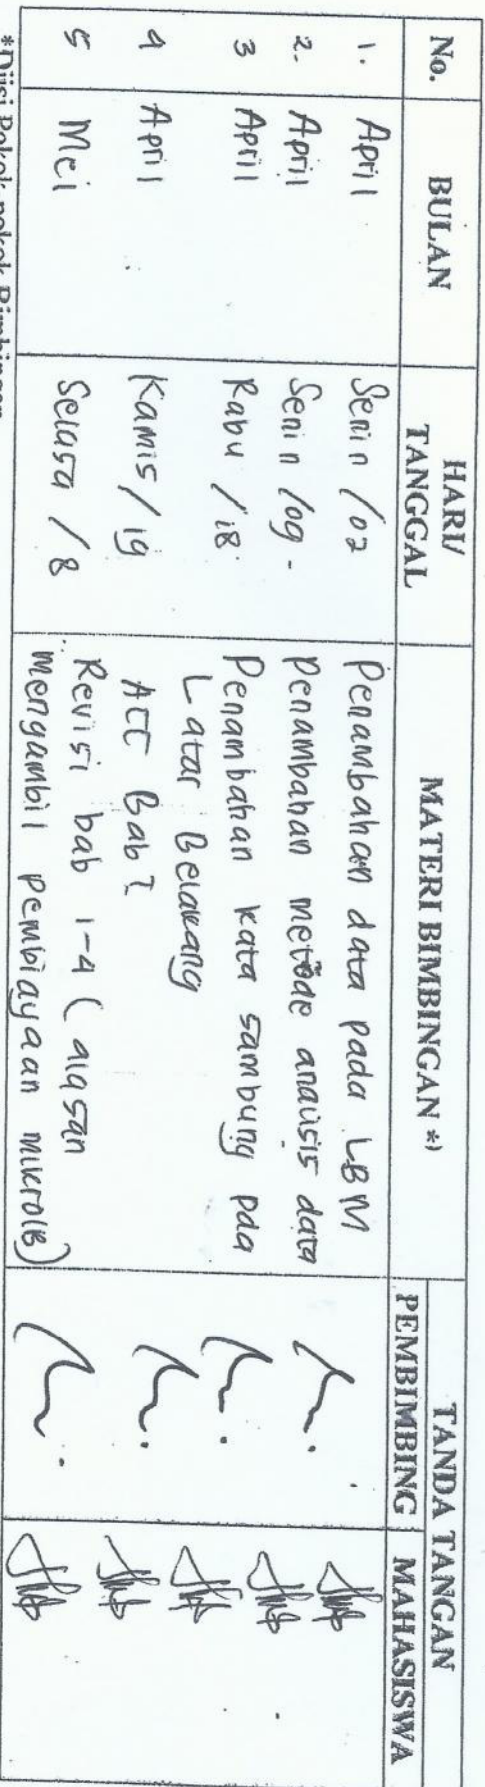 No. BULAN HARI/ TANGGAL MATERI BIMBINGAN *) TANDA TANGAN
PEMBIMBING MAHASISWA
1. April Senin /02 Penambahan data pada LBM
2. April Senin /09 - Penambahan metode analisis data
3 April Rabu /18 Penambahan kata sambung pda
Latar Belakang
4 April Kamis /19 ACC Bab 2
5 Mei Selasa / 8 Revisi bab 1-4 ( alasan
mengambil pembiayaan mikroIB)
*Diisi Pokok-pokok Bimbingan